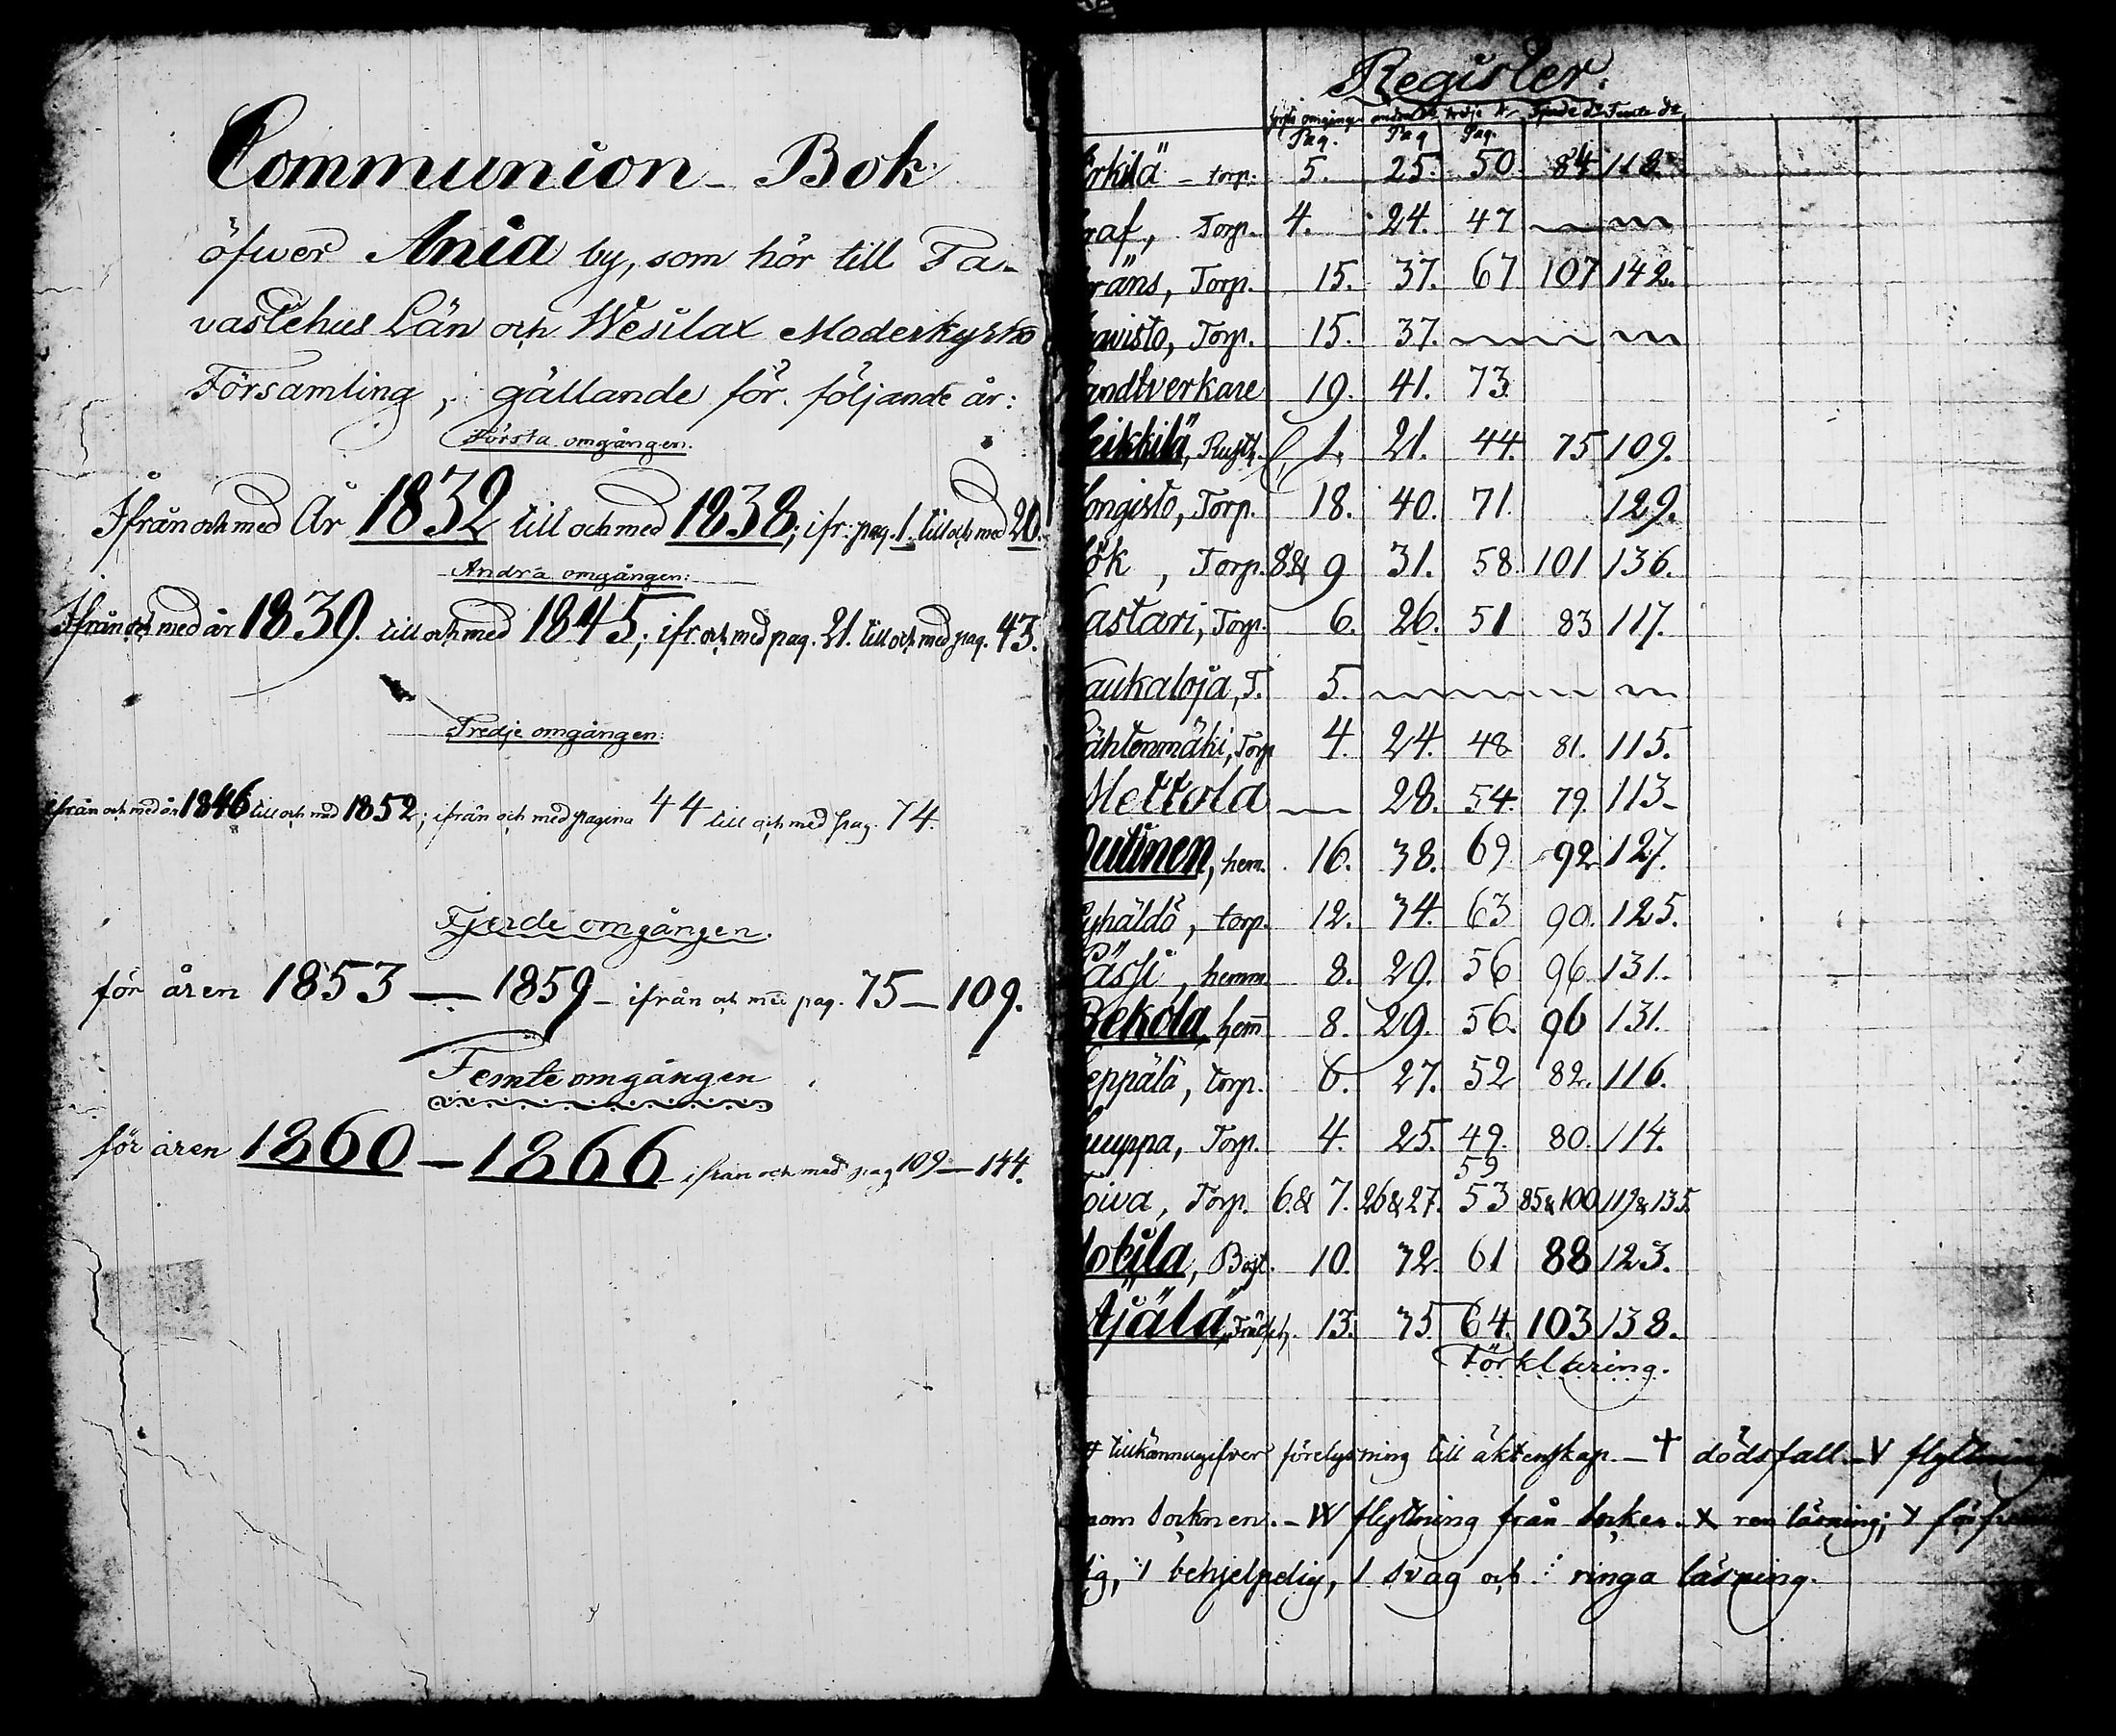 Communion Bok
öfwer Ania by, som hör till Ta-
vastehus Län och Wesilax Moderkyrko
Församling, gällande för följande år:
Första omgången.
Ifrån och med År 1832 till och med 1838; ifr: pag. 1. till och med 20.
Andra omgången:
Ifrån och med år 1839. till och med 1845; ifr. och med pag. 21. till och med pag. 43.
Tredje omgången:
ifrån och med år 1846 till och med 1852; ifrån och med pagina 44 till och med pag. 74.
Fjerde omgången.
för åren 1853 — 1859 – ifrån och med pag. 75 — 109.
Femte omgången
för åren 1860 — 1866 ifrån och med pag 109 — 144.
Register.
första omgång. andra do tredje do Fjerde do Femte do
Pag. Pag Pag.
rkilä – torp. 5. 25. 50. 84 118.
raf, Torp. 4. 24. 47
räns, Torp. 15. 37. 67 107 142.
avisto, Torp. 15. 37.
andtverkare 19. 41. 73
eikkilä, Rusth. 1. 21. 44. 75 109.
ongisto, Torp. 18. 40. 71. 129.
ök, Torp. 8 & 9 31. 58. 101 136.
astari, Torp. 6. 26. 51 83 117.
aukaloja, T. 5.
ähtenmäki, Torp 4. 24. 48 81. 115.
Mettola — 28. 54 79. 113
Outinen, hem. 16. 38. 69 92 127.
yhäldö, torp. 12. 34. 63 90. 125.
Pässi, hemm. 8. 29. 56 96. 131.
Rekola, hem 8. 29. 56. 96 131.
eppälä, torp. 6. 27. 52 82. 116.
uuppa, Torp. 4. 25. 49. 80. 114.
59
oiva, Torp. 6. & 7. 26 & 27. 53 85 & 100 119 & 135.
Bost. 10. 32. 61 88 123.
jälä, 13. 35. 64. 103 138.
Förklaring.
tillkännagifver förelysning till äktenskap. — † dödsfall. – V flyttning
nom socknen. – W flyttning från socken. x ren läsning; Y
ig, 1 behjelpelig, 1 svag och ringa läsning.